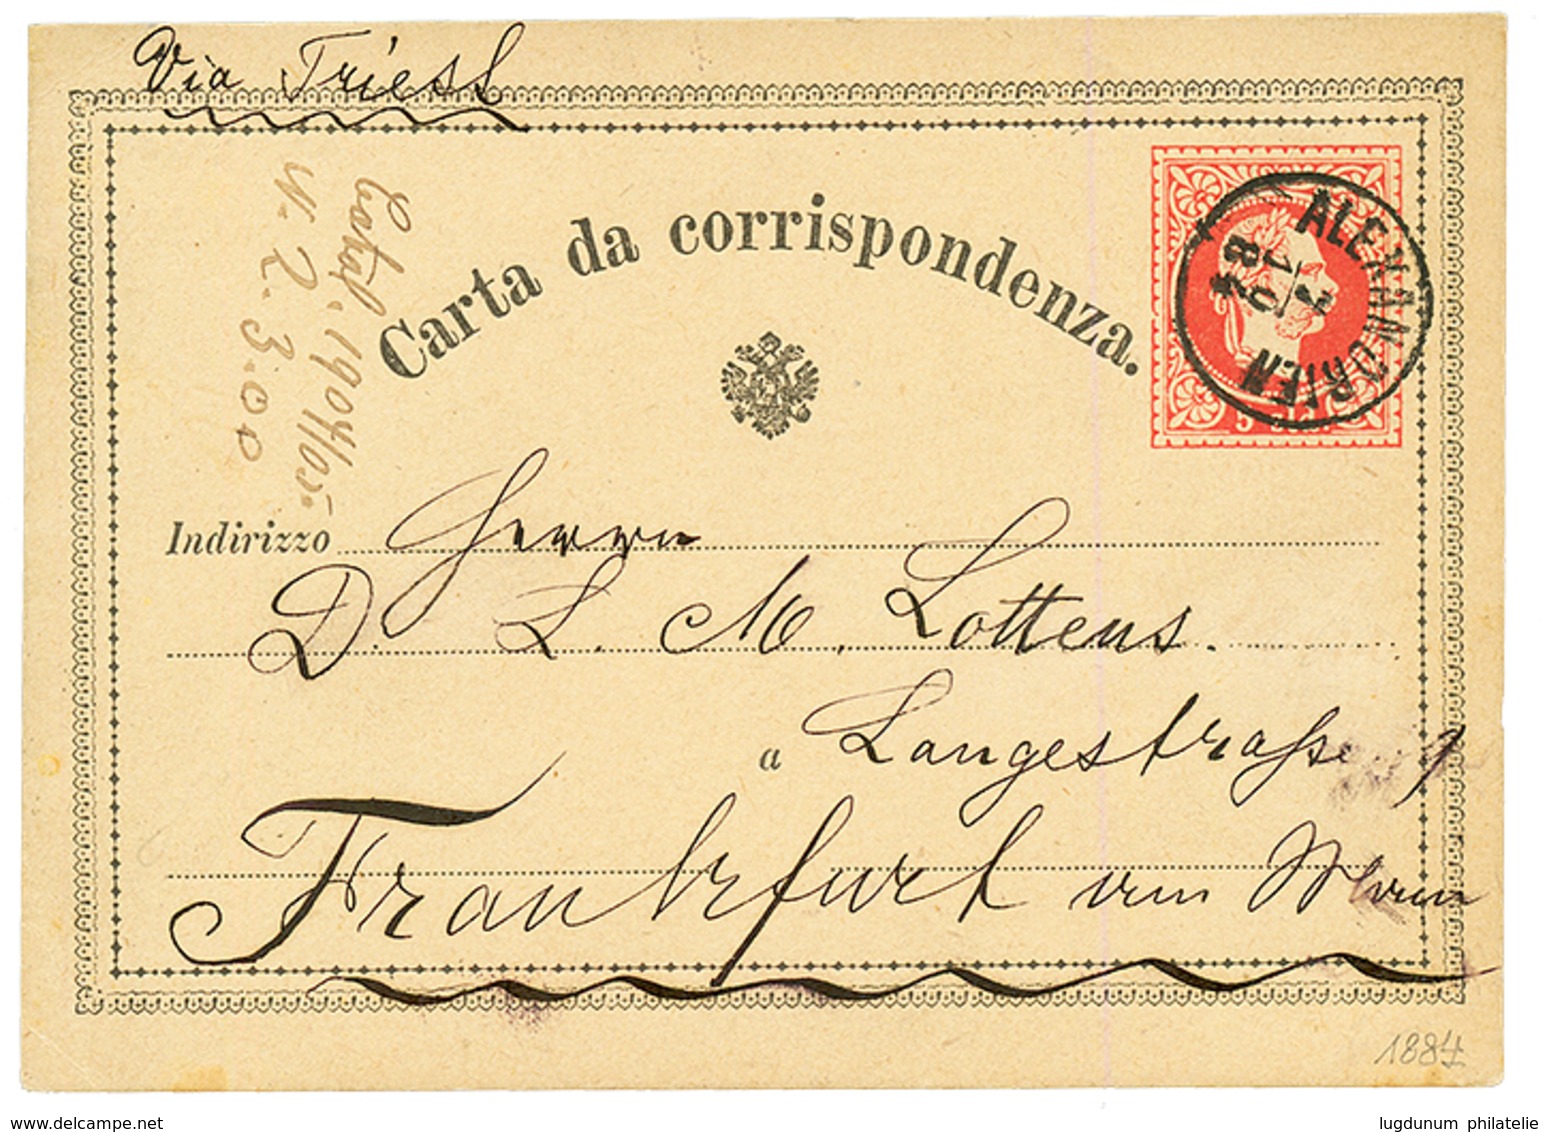 Via Triest
Catal. 1904/05
N. 2. 3.00
Carta da corrispondenza.
ALEXANDRIEN
7
10
84
5 sld.
Indirizzo Herrn
D. L. M. Lottens.
a Langestraße
Frankfurt am Main
1884
www.delcampe.net
lugdunum philatelie